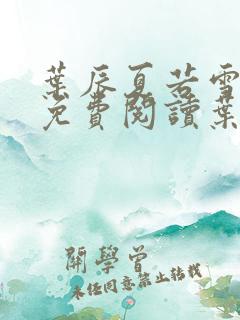 葉辰夏若雪
免費閱讀葉
開學曾
未經同意禁止轉載